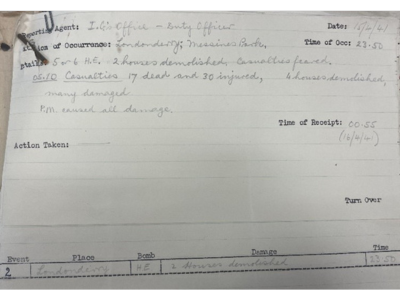 Agent: I.G's Office - Duty Officer Date: 15/4/41
of Occurrence: Londonderry, Messines Park. Time of Occ: 23.50
5 or 6 H.E. 2 houses demolished. Casualties feared.
Casualties 17 dead and 30 injured, 4 houses demolished,
many damaged
P.M. caused all damage.
Time of Receipt: 00.55
(16/4/41)
Action Taken:
Turn Over
Event Place Bomb Damage Time
2 Londonderry H.E. 2 Houses demolished 23.50